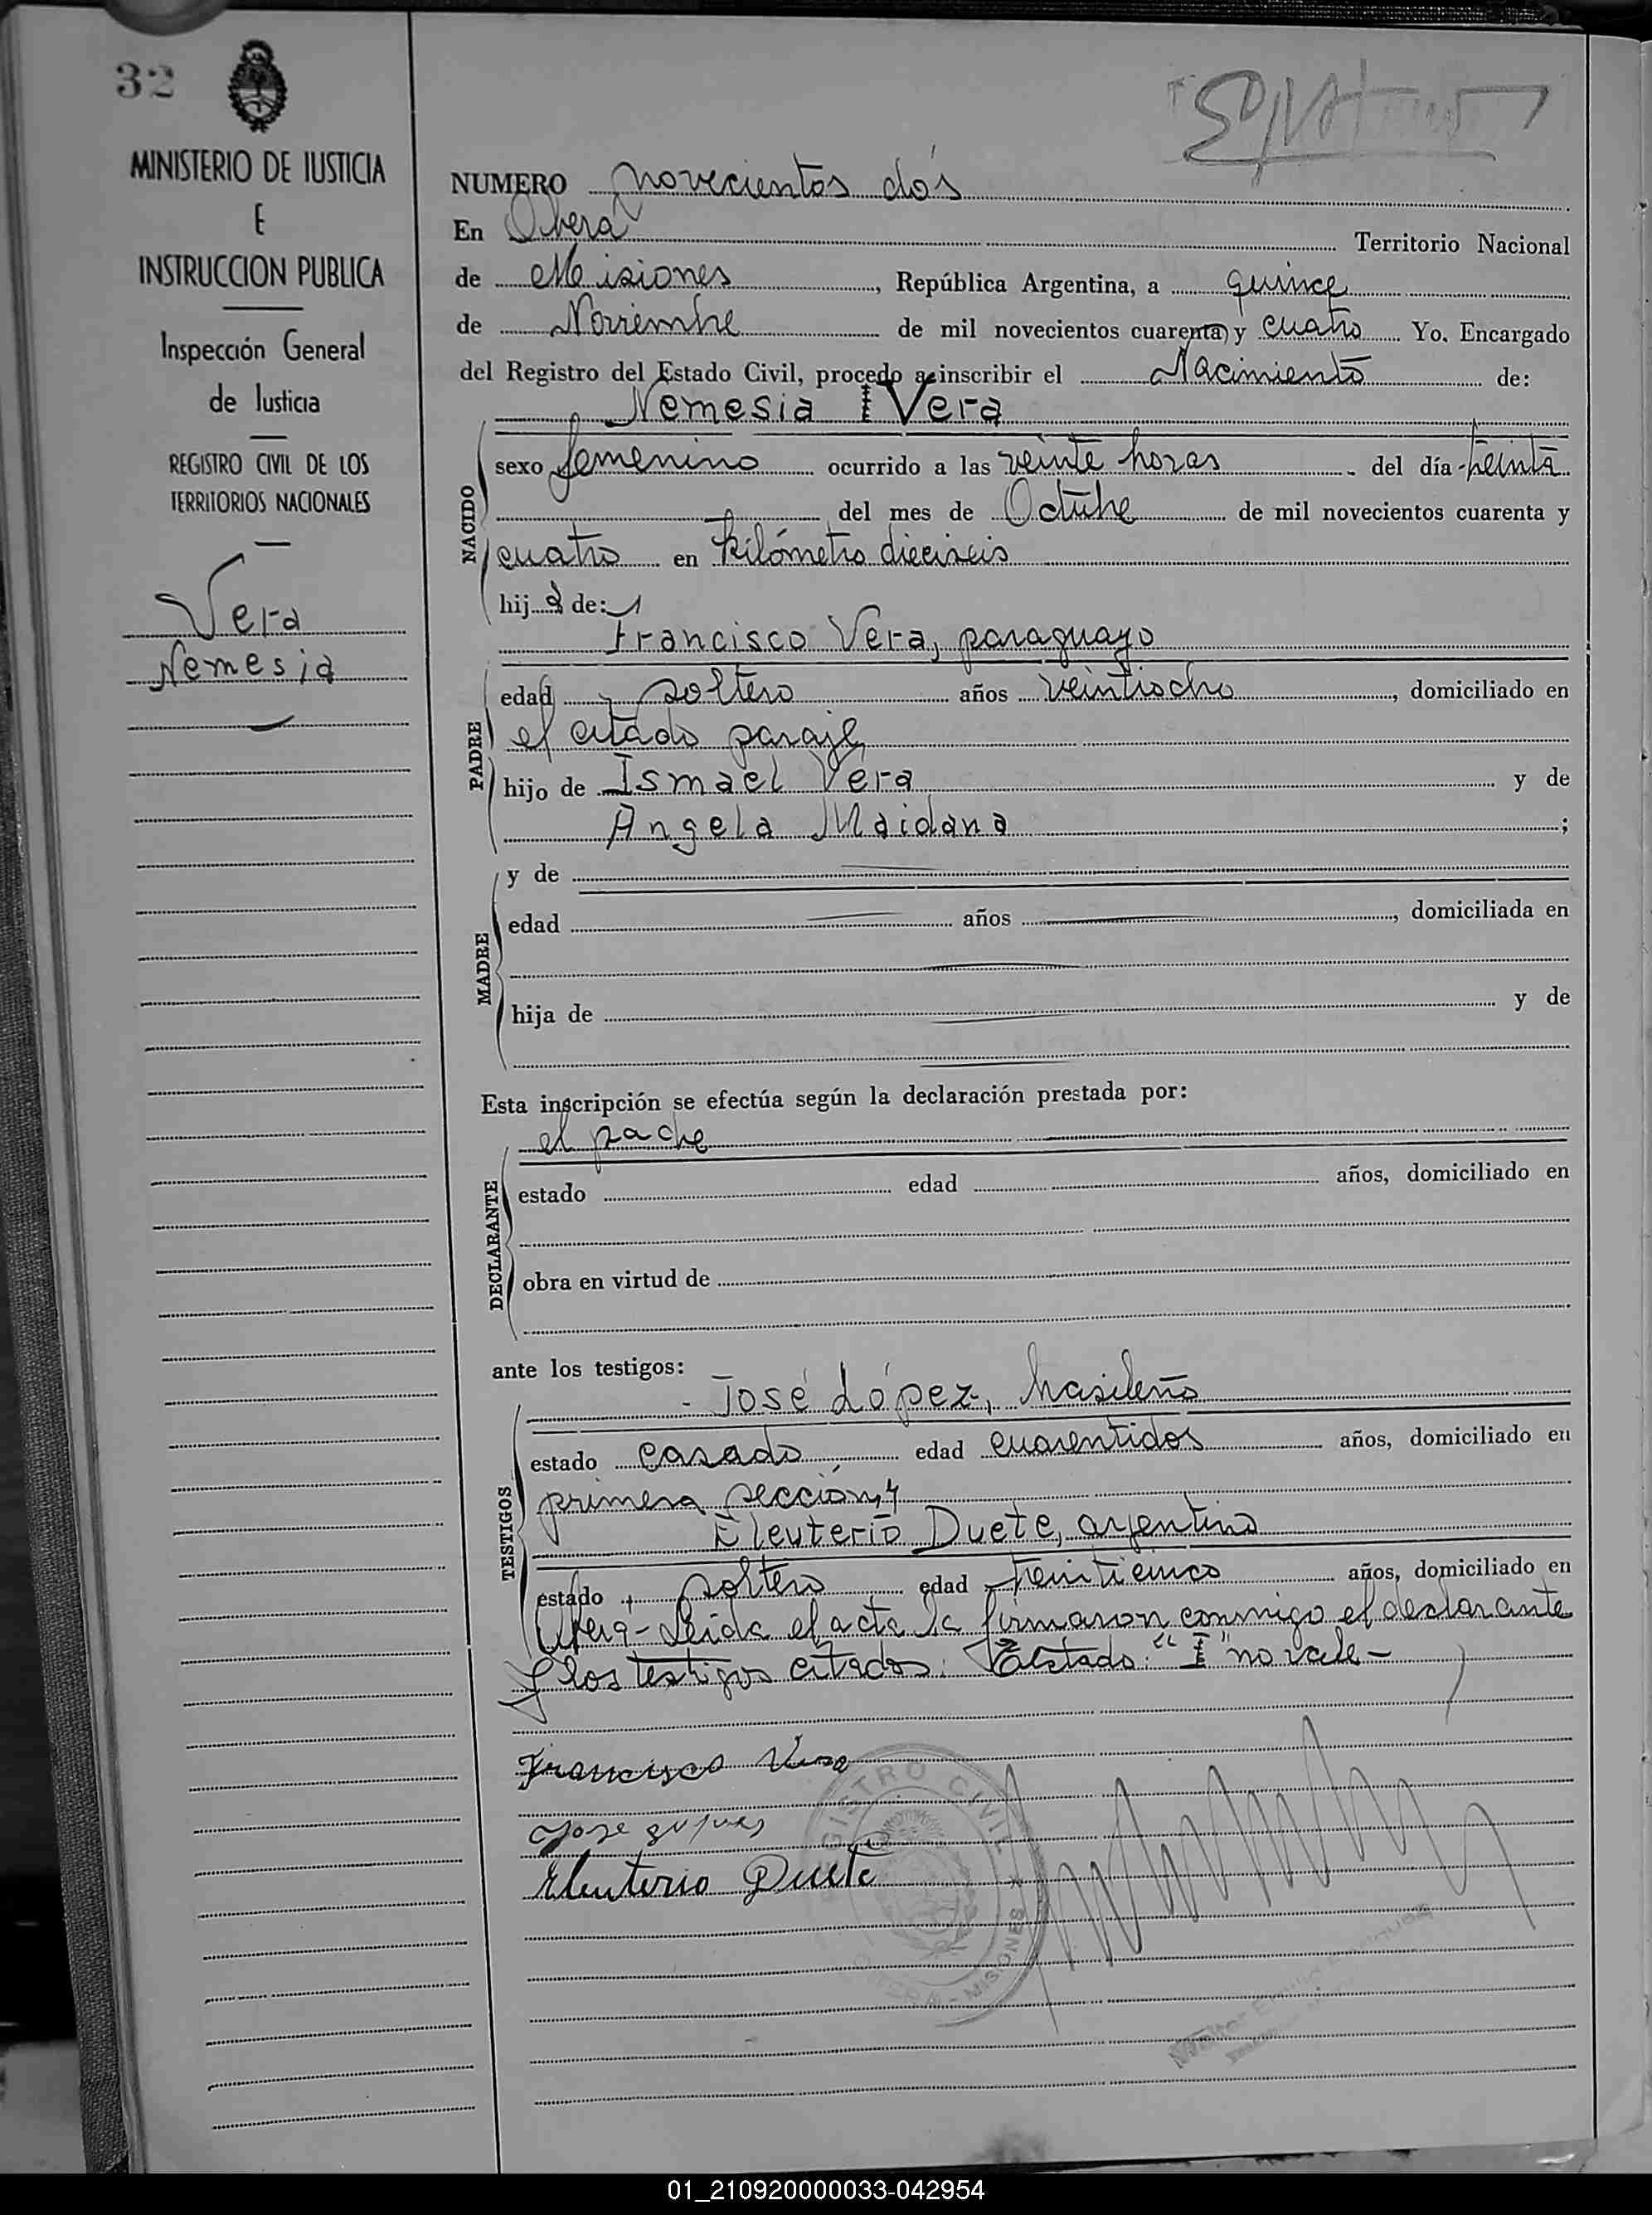 32
MINISTERIO DE JUSTICIA
E
INSTRUCCION PUBLICA
Inspección General
de Justicia
REGISTRO CIVIL DE LOS
TERRITORIOS NACIONALES
Vera
Nemesia
NUMERO novecientos dos
En Oberá Territorio Nacional
de Misiones, República Argentina, a quince
de Noviembre de mil novecientos cuarenta y cuatro Yo, Encargado
del Registro del Estado Civil, procedo a inscribir el Nacimiento de:
Nemesia I Vera
NACIDO
sexo femenino ocurrido a las veinte horas del día treinta
del mes de Octubre de mil novecientos cuarenta y
cuatro en kilómetro dieciseis
hija de:
Francisco Vera, paraguayo
PADRE
edad soltero años veintiocho, domiciliado en
el citado paraje
hijo de Ismael Vera y de
Angela Maidana;
MADRE
y de
edad años, domiciliada en
hija de y de
Esta inscripción se efectúa según la declaración prestada por:
el padre
DECLARANTE
estado edad años, domiciliado en
obra en virtud de
ante los testigos:
José López, brasileño
TESTIGOS
estado casado edad cuarentidos años, domiciliado en
primera sección, y
Eleuterio Duete, argentino
estado soltero edad treinticinco años, domiciliado en
Oberá - Leída el acta la firmaron conmigo el declarante
y los testigos citados. Testado: "I" no vale -
Francisco Vera
Jose
Eleuterio Duete
REGISTRO CIVIL
OBERA - MISIONES
01_210920000033-042954